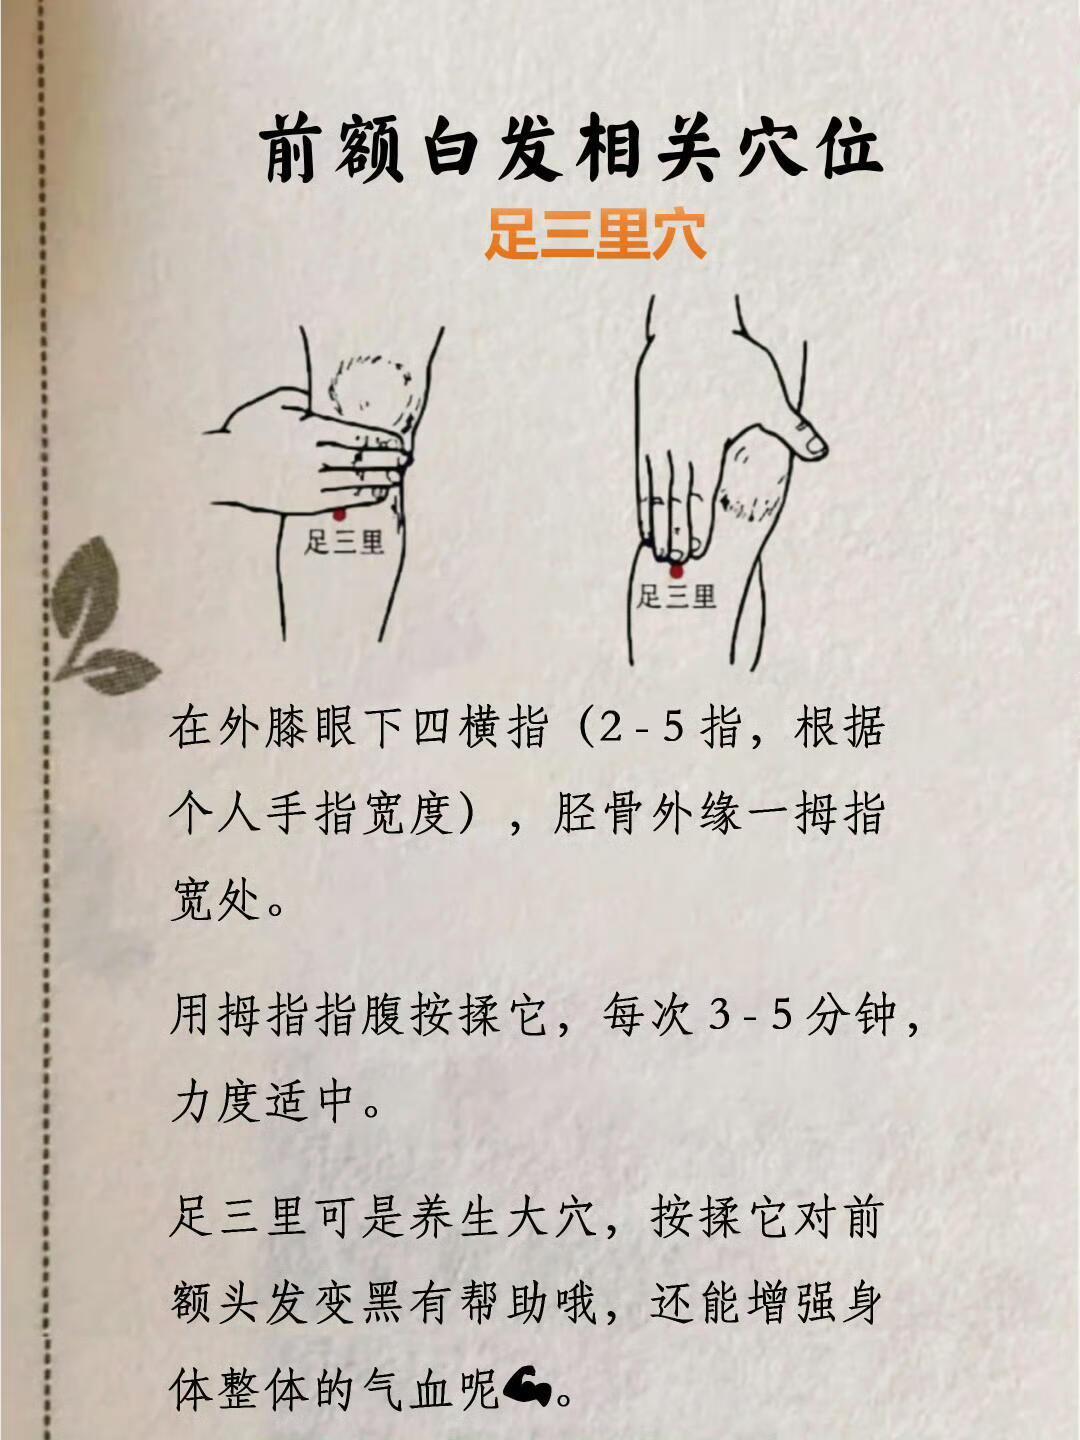 前额白发相关穴位
足三里穴
足三里
足三里
在外膝眼下四横指（2-5指，根据
个人手指宽度），胫骨外缘一拇指
宽处。
用拇指指腹按揉它，每次3-5分钟，
力度适中。
足三里可是养生大穴，按揉它对前
额头发变黑有帮助哦，还能增强身
体整体的气血呢💪。